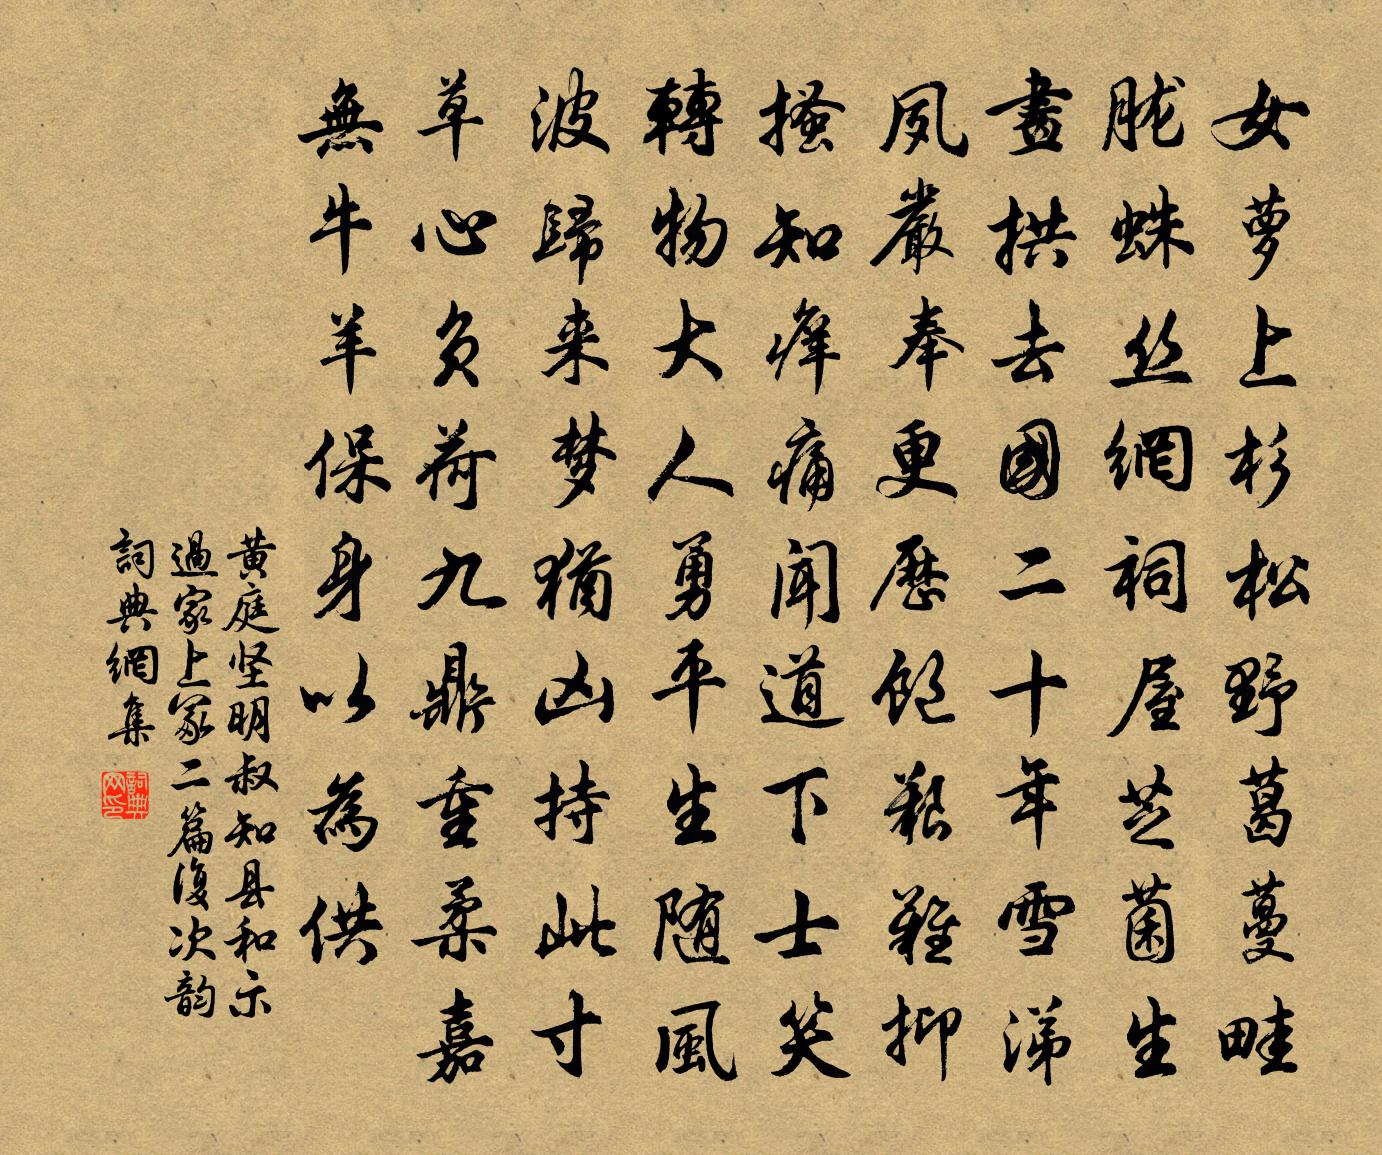 女萝上杉松野葛蔓畦
胧蛛丝網祠屋芝菌生
畫拱去國二十年雪涕
夙嚴奉更歷飽艱難抑
搔知痒痛聞道下士笑
轉物大人勇平生随風
波歸来梦猶凶持此寸
草心負荷九鼎重柔嘉
無牛羊保身以為供
黄庭坚明叔知县和示
過家上冢二篇復次韵
詞典網集
詞典网印